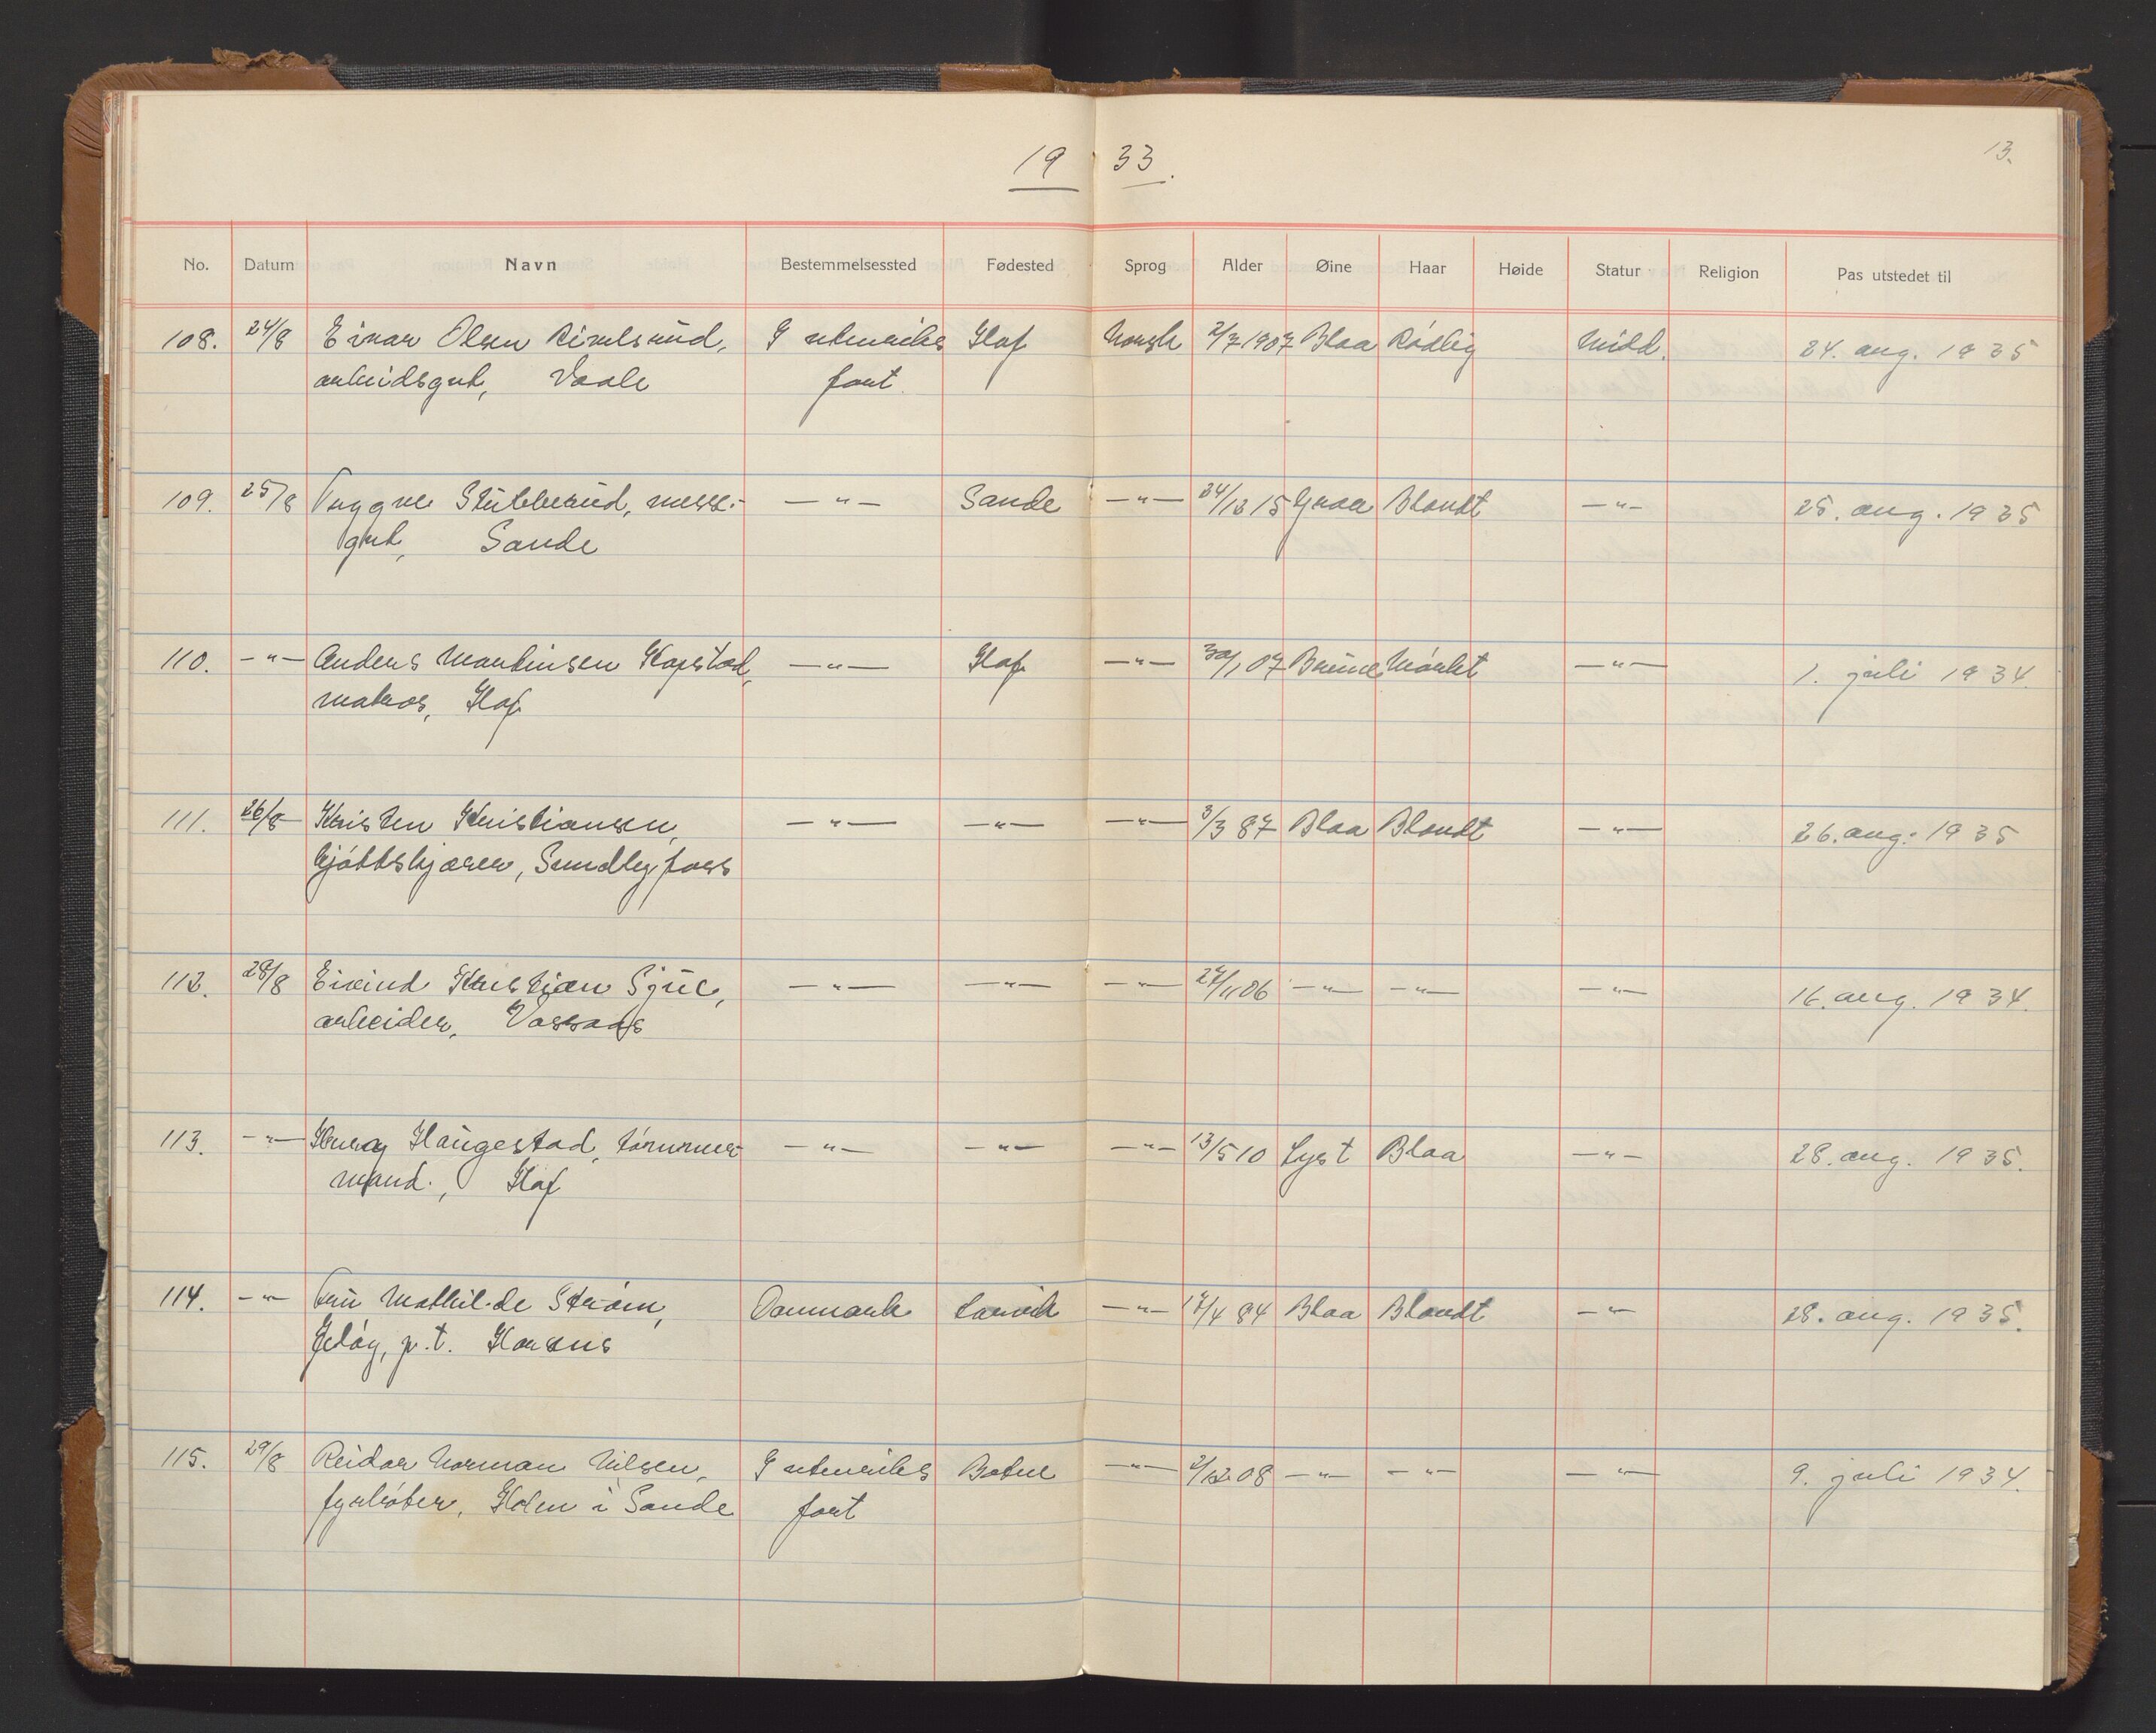 19 33.
13.
No. Datum Navn Bestemmelsessted Fødested Sprog Alder Øine Haar Høide Statur Religion Pas utstedet til
108. 24/8 Einar Olsen I utenriks Hof Norsk 2/7 1907 Blaa Rødlig Midd. 24. aug. 1935
arbeidsgut, Vaale fart
109. 25/8 Tryggve Stubberud, mess- —"— Sande —"— 24/12 15 Graa Blondt —"— 25. aug. 1935
gut, Sande
110. —"— Anders Martinsen Hapstad, —"— Hof —"— 30/1 07 Brune Mørkt —"— 1. juli 1934.
matros, Hof
111. 26/8 Kristen Kristiansen, —"— —"— —"— 3/3 87 Blaa Blondt —"— 26. aug. 1935
kjøttskjærer, Sundbyfoss
112. 28/8 Eivind Kristian Sjue, —"— —"— —"— 27/11 06 —"— —"— —"— 16. aug. 1934.
arbeider, Vassaas
113. —"— Henry Haugestad, tømmer- —"— —"— —"— 13/5 10 Lyst Blaa —"— 28. aug. 1935.
mand., Hof
114. —"— Fru Mathilde Strøm, Danmark Larvik —"— 17/4 84 Blaa Blondt —"— 28. aug. 1935.
Jeløy, p.t. Horsens
115. 29/8 Reidar Norman Nilsen, I utenriks Botne —"— 2/12 08 —"— —"— —"— 9. juli 1934.
fyrbøter, Holm i Sande fart